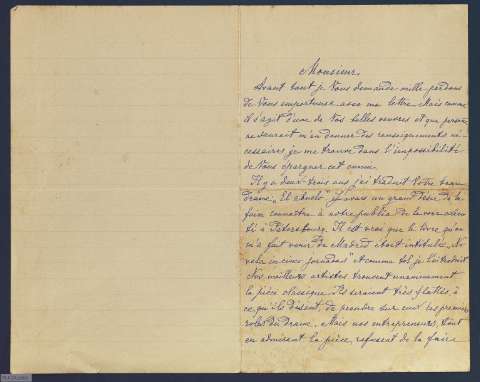 Monsieur,
Avant tout je Vous demande mille pardons
de Vous importuner avec ma lettre. Mais comme
il s'agit d'une de Vos belles oeuvres et que personne
ne saurait m'en donner des renseignements né-
cessaires, je me trouve dans l'impossibilité
de Vous épargner cet ennui.
Il y a deux-trois ans j'ai traduit Votre beau
drame "El abuelo". J'avais un grand désir de le
faire connaitre à notre public, de le voir
à Pétersbourg. Il est vrai que le livre qu'on
m'a fait venir de Madrid était intitulé "No-
vela en cinco jornadas". Et comme tel je l'ai traduit.
Nos meilleurs artistes trouvent unanimement
la pièce classique. Ils seraient très flattés, à
ce qu'ils disent, de prendre sur eux les premiers
rôles du drame. Mais nos entrepreneurs, tout
en admirant la pièce, refusent de la faire